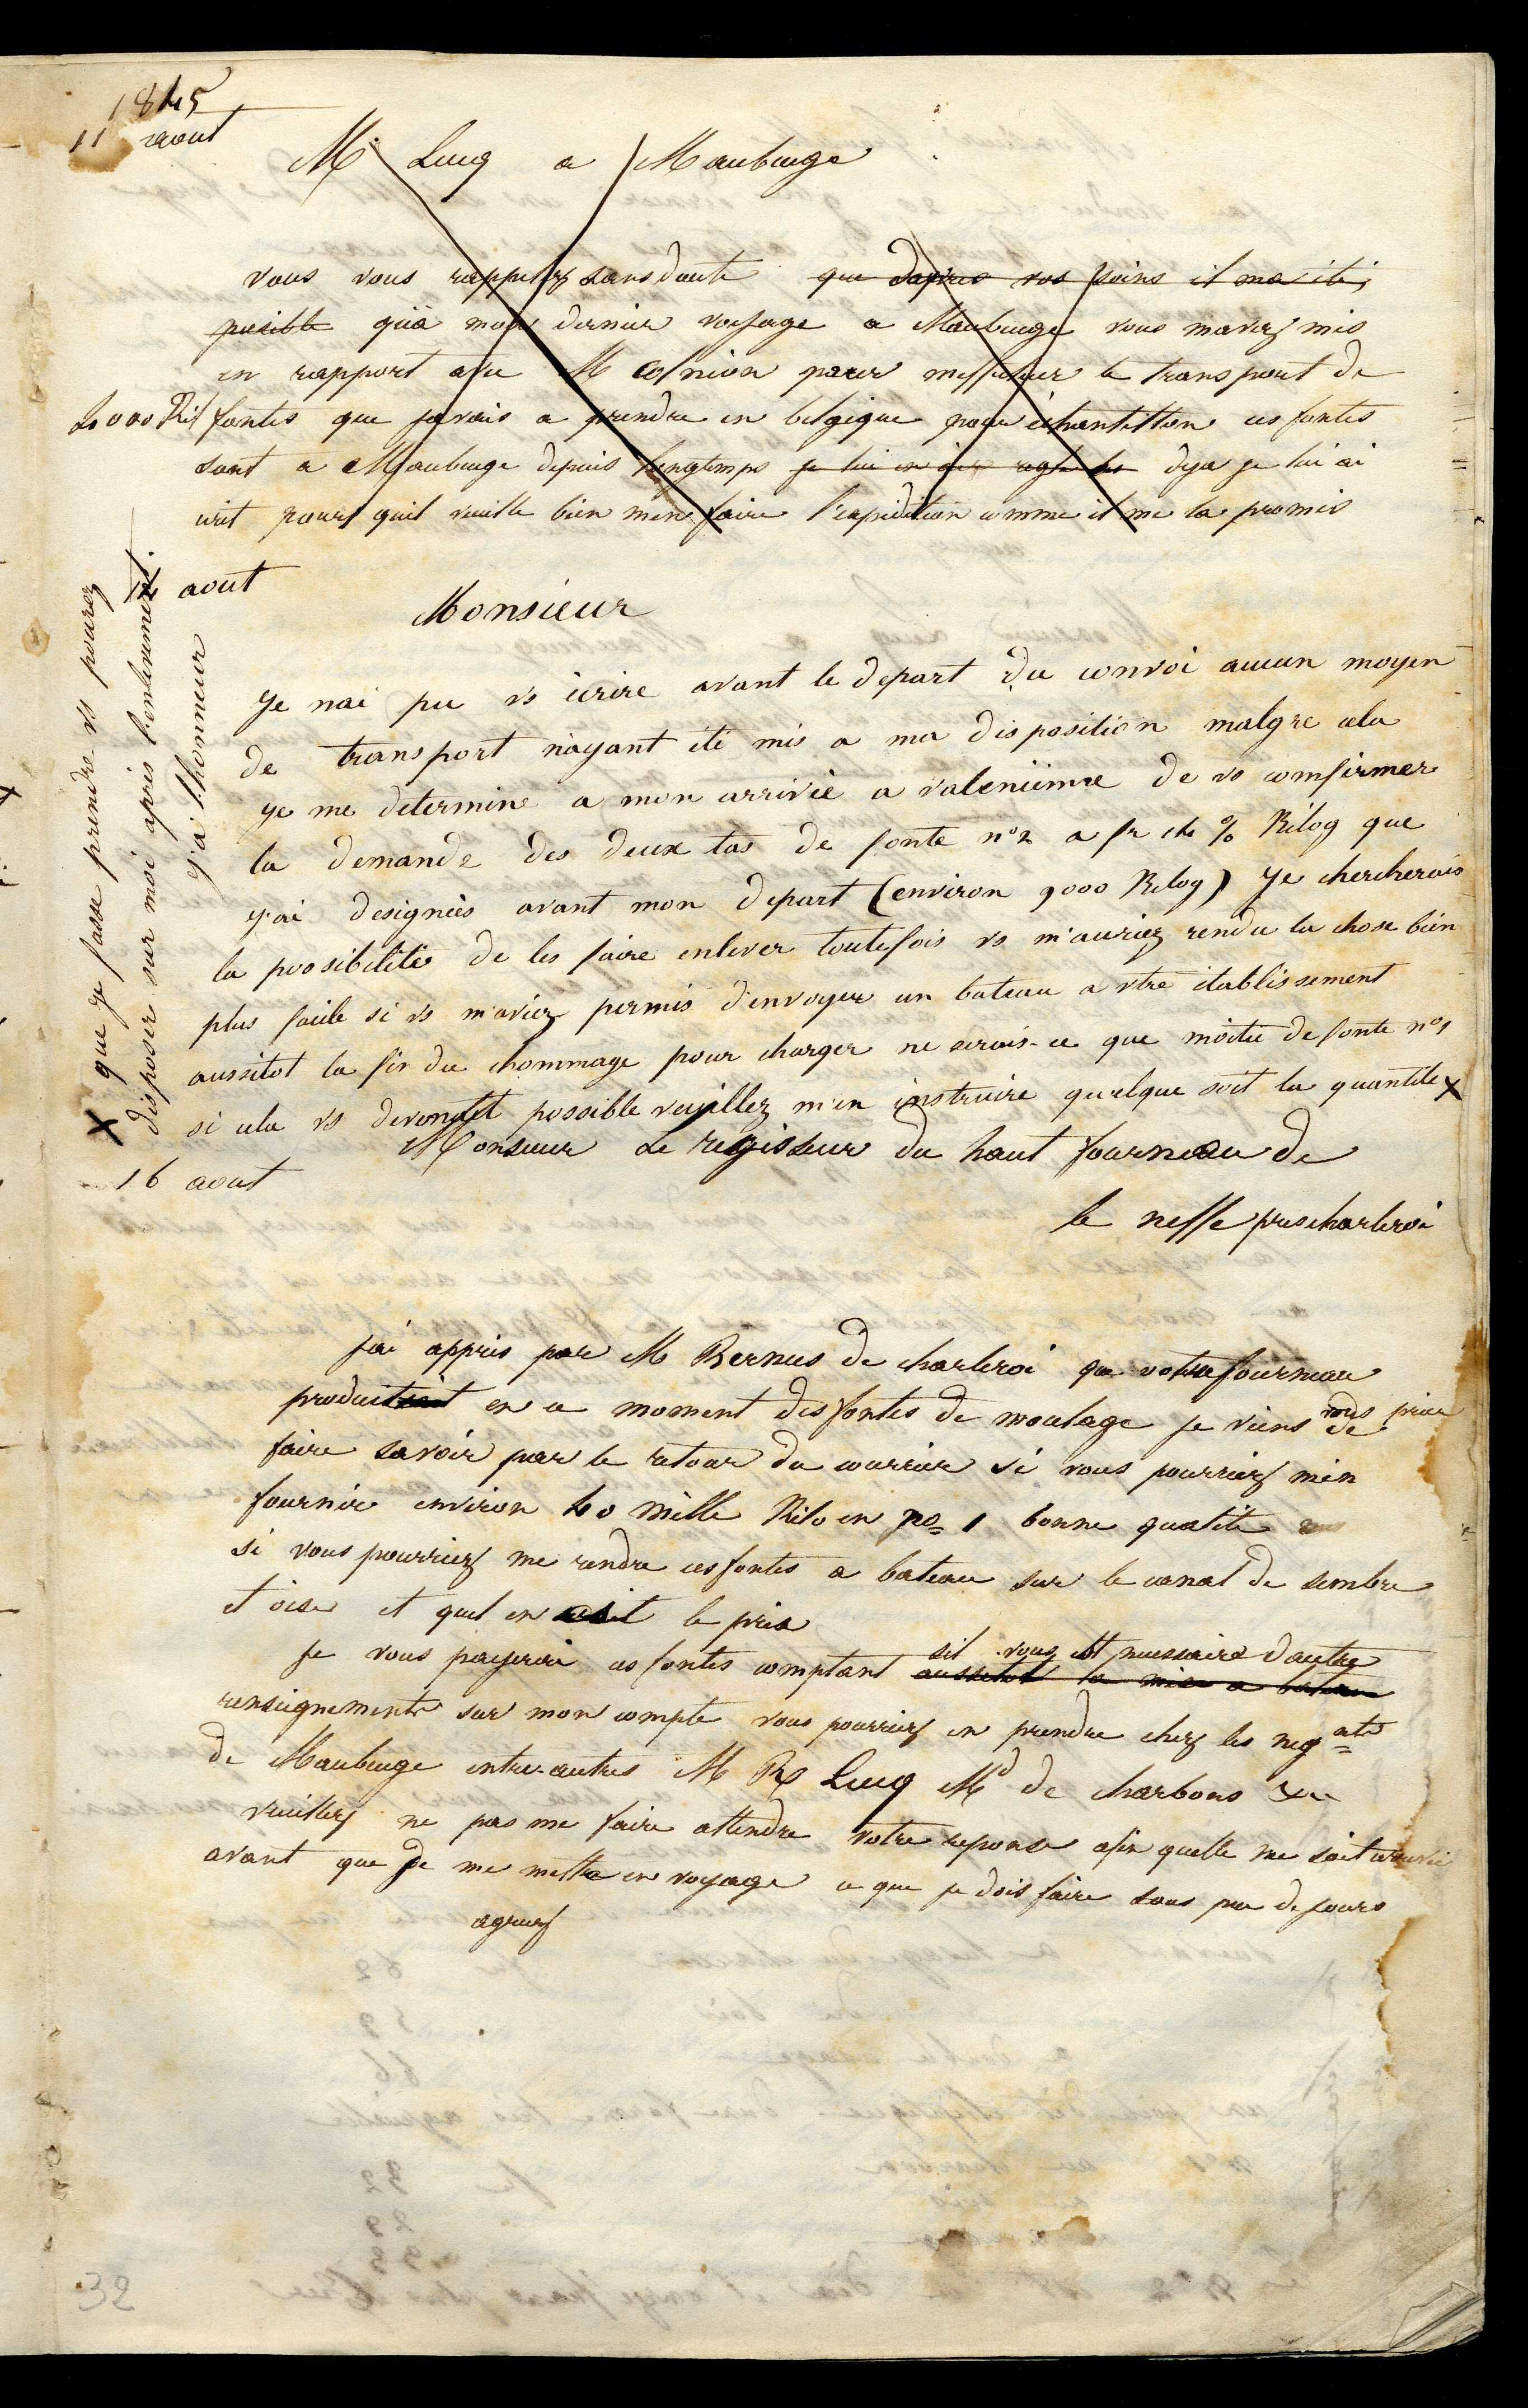 1845
11 aout
M. Lucq a Maubeuge
vous vous rappelez sans doute que dapres vos soins il ma été
possible qu'a mon dernier voyage a Maubeuge vous mavez mis
en rapport avec M pour messurer le transport de
fontes que javais a prendre en belgique pour échantillon ces fontes
sont a Maubeuge depuis longtemps je lui en ai deja je lui ai
ecrit pour quil veuille bien men faire l'expedition comme il me la promis
aout
Monsieur
Je nai pu vs écrire avant le depart du convoi aucun moyen
de transport n'ayant été mis a ma disposition malgre cela
je me determine a mon arrivée a de vs comfirmer
la demande des deux tas de fonte n° 2 a fr % Kilog que
j'ai designées avant mon depart (environ 9000 Kilog) Je chercherais
la possibilité de les faire enlever toutefois vs m'auriez rendu la chose bien
plus facile si vs m'aviez permis d'envoyer un bateau a vtre établissement
aussitot la fin du chommage pour charger ne serais-ce que moitié de fonte n° 1
si cela vs possible veuillez m'en instruire quelque soit la quantité X
X que je fasse prendre vs pourez
disposer sur moi apres l'enlevement.
J'ai l'honneur
16 aout
Monsieur Le regisseur du haut fourneau de
pres charleroi
jai appris par M Bernus de charleroi que votre fourneau
produit en ce moment des fontes de moulage je viens vous prier de
faire savoir par le retour du courrier si vous pourriez men
fournir environ 40 mille Kilo en no 1 bonne qualité
si vous pourriez me rendre ces fontes a bateau sur le canal de sembre
et oise et quel en est le prix
Je vous payerai ces fontes comptant aussitot la mise a bateau sil vous est necessaire dautre
renseignements sur mon compte vous pourriez en prendre chez les negats
de Maubeuge entre-autres M Lucq Md de charbons
veuillez ne pas me faire attendre votre reponse afin quelle me soit
avant que je me mette en voyage ce que je dois faire sous peu de jours
agreez
32